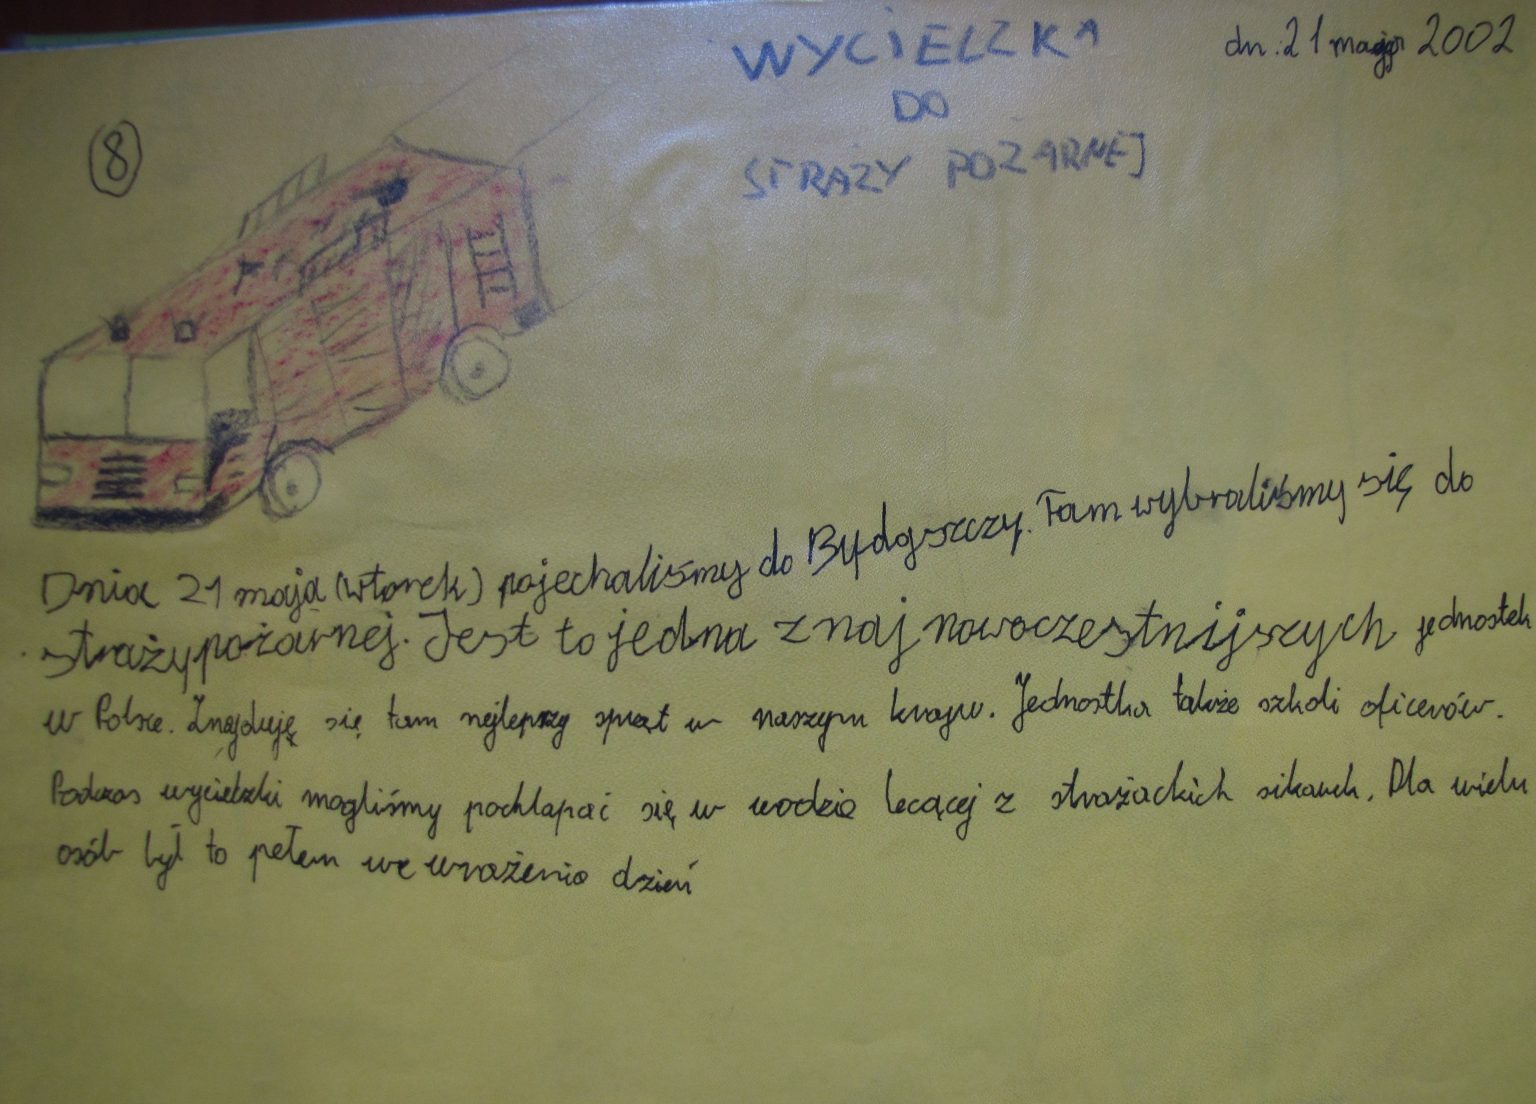 WYCIECZKA
dn. 21 maja 2002
DO
STRAŻY POŻARNEJ
8
Dnia 21 maja (wtorek) pojechaliśmy do Bydgoszczy. Tam wybraliśmy się do
straży pożarnej. Jest to jedna z naj nowoczestnijszych jednostek
w Polsce. Znajduję się tam nejlepszy sprzęt w naszym kraju. Jednostka także szkoli oficerów.
Podczas wycieczki mogliśmy pochlapać się w wodzie lecącej z strażackich sikawek. Dla wielu
osób był to pełen we wrażenia dzień